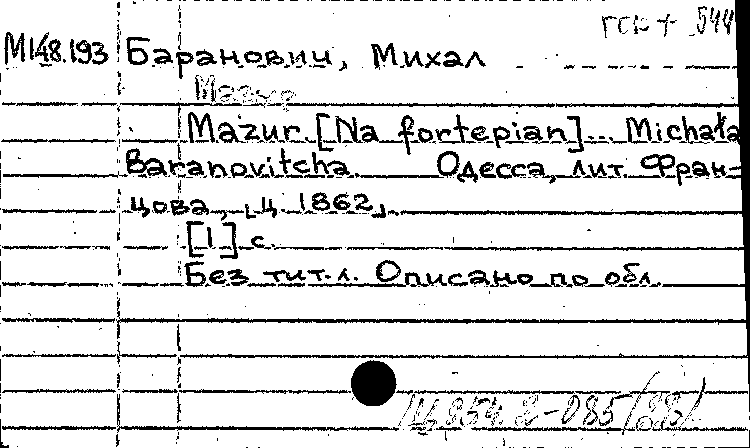 М148.193 Баранович, Михал
Мазур
Mazur. [Na fortepian]... Michała
Baranovitcha. Одесса, лит. Фран-
цова, ц. 1862.
[1] с.
Без тит. л. Описано по обл.